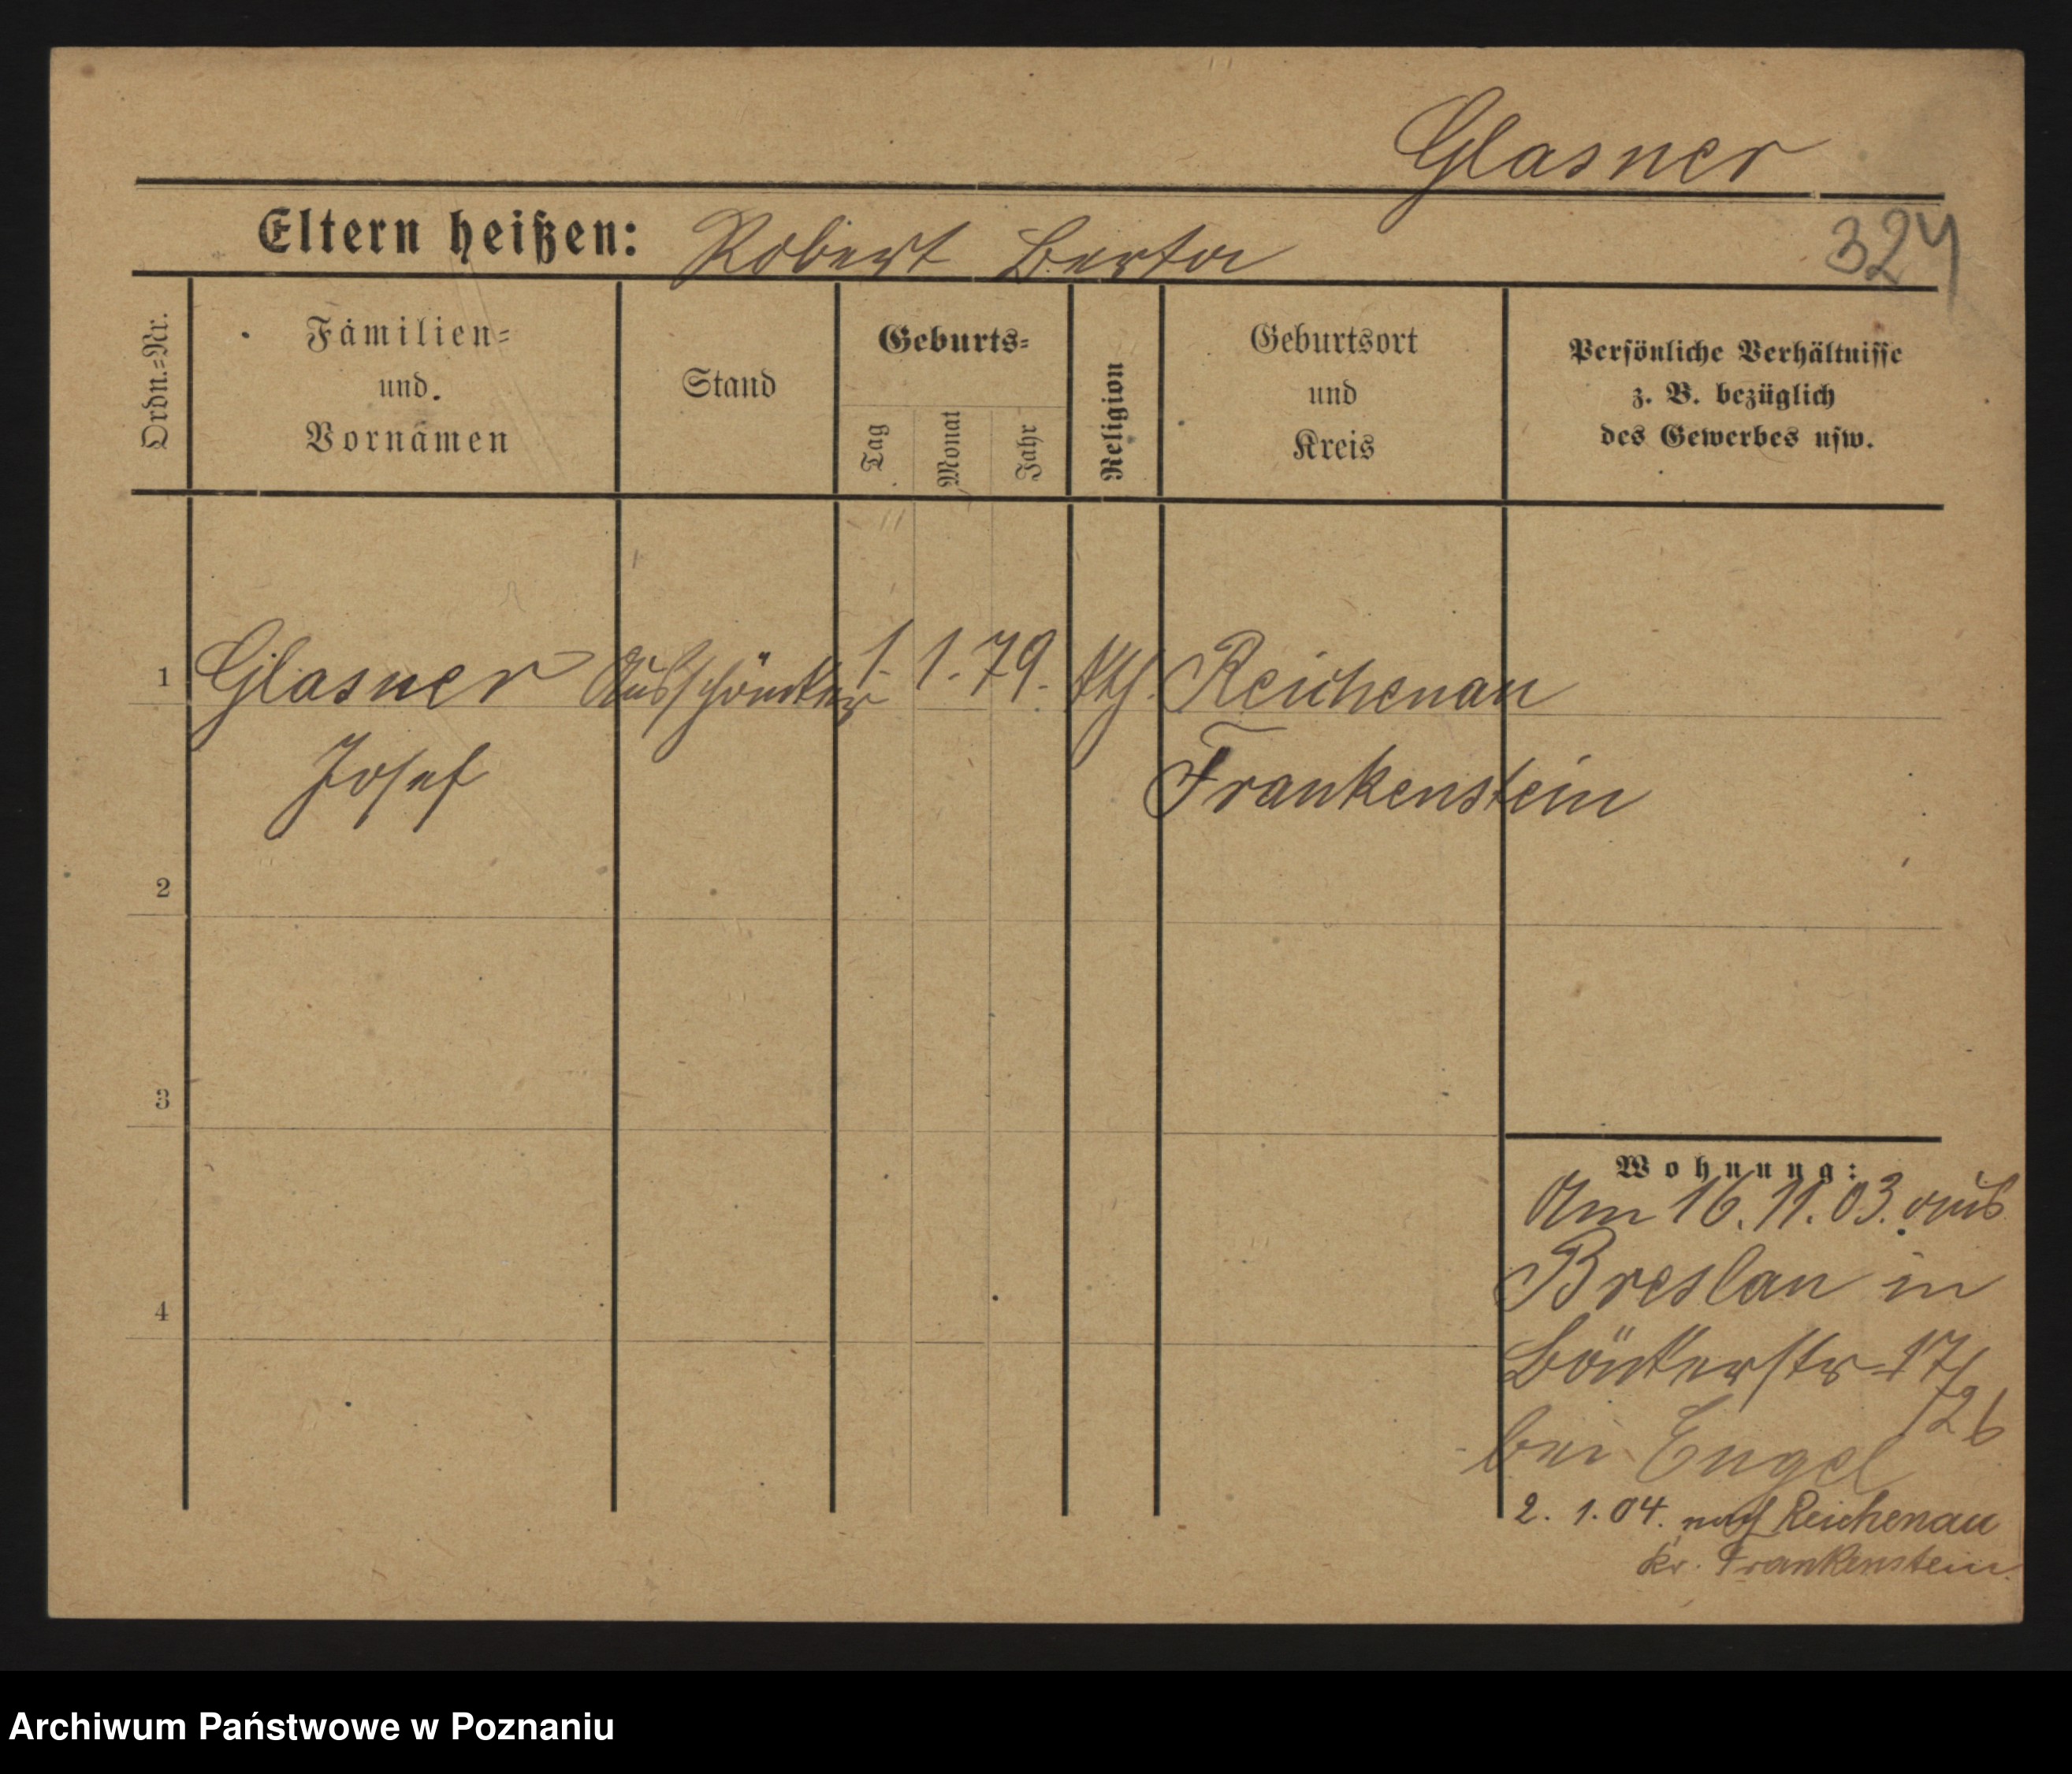 Glasner
Eltern heißen: Robert Berta
324
Ordn.=Nr.
Familien=
und
Vornamen
Stand
Geburts=
Tag
Monat
Jahr
Religion
Geburtsort
und
Kreis
Persönliche Verhältnisse
z. B. bezüglich
des Gewerbes usw.
1 Glasner 1. 1. 79. kth. Reichenau
Josef Frankenstein
2
3
4
Wohnung:
Am 16. 11. 03. aus
Breslau in
17/
26
bei Engel
2. 1. 04. nach Reichenau
Kr. Frankenstein.
Archiwum Państwowe w Poznaniu